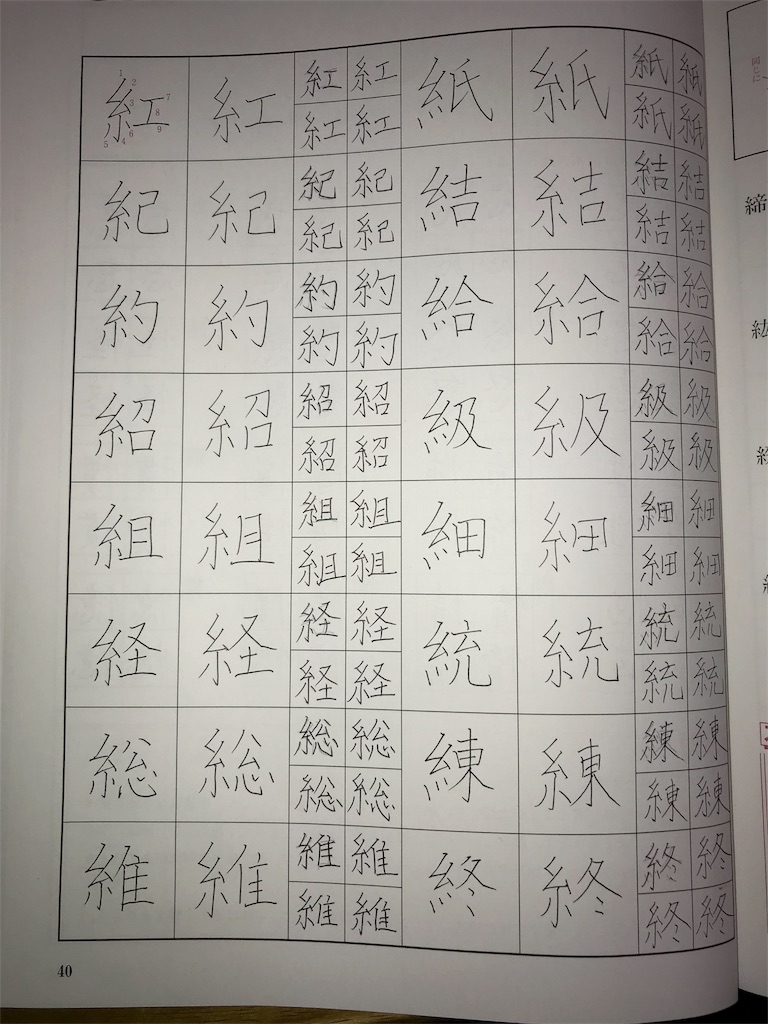 1 2 3 4 5 6 7 8 9
紅 紅 紅 紅 紙 紙 紙 紙
紅 紅 紙 紙
紀 紀 紀 紀 結 結 結 結
紀 紀 結 結
約 約 約 約 給 給 給 給
約 約 給 給
紹 紹 紹 紹 級 級 級 級
紹 紹 級 級
組 組 組 組 細 細 細 細
組 組 細 細
経 経 経 経 統 統 統 統
経 経 統 統
総 総 総 総 練 練 練 練
総 総 練 練
維 維 維 維 終 終 終 終
維 維 終 終
40
同じに
締